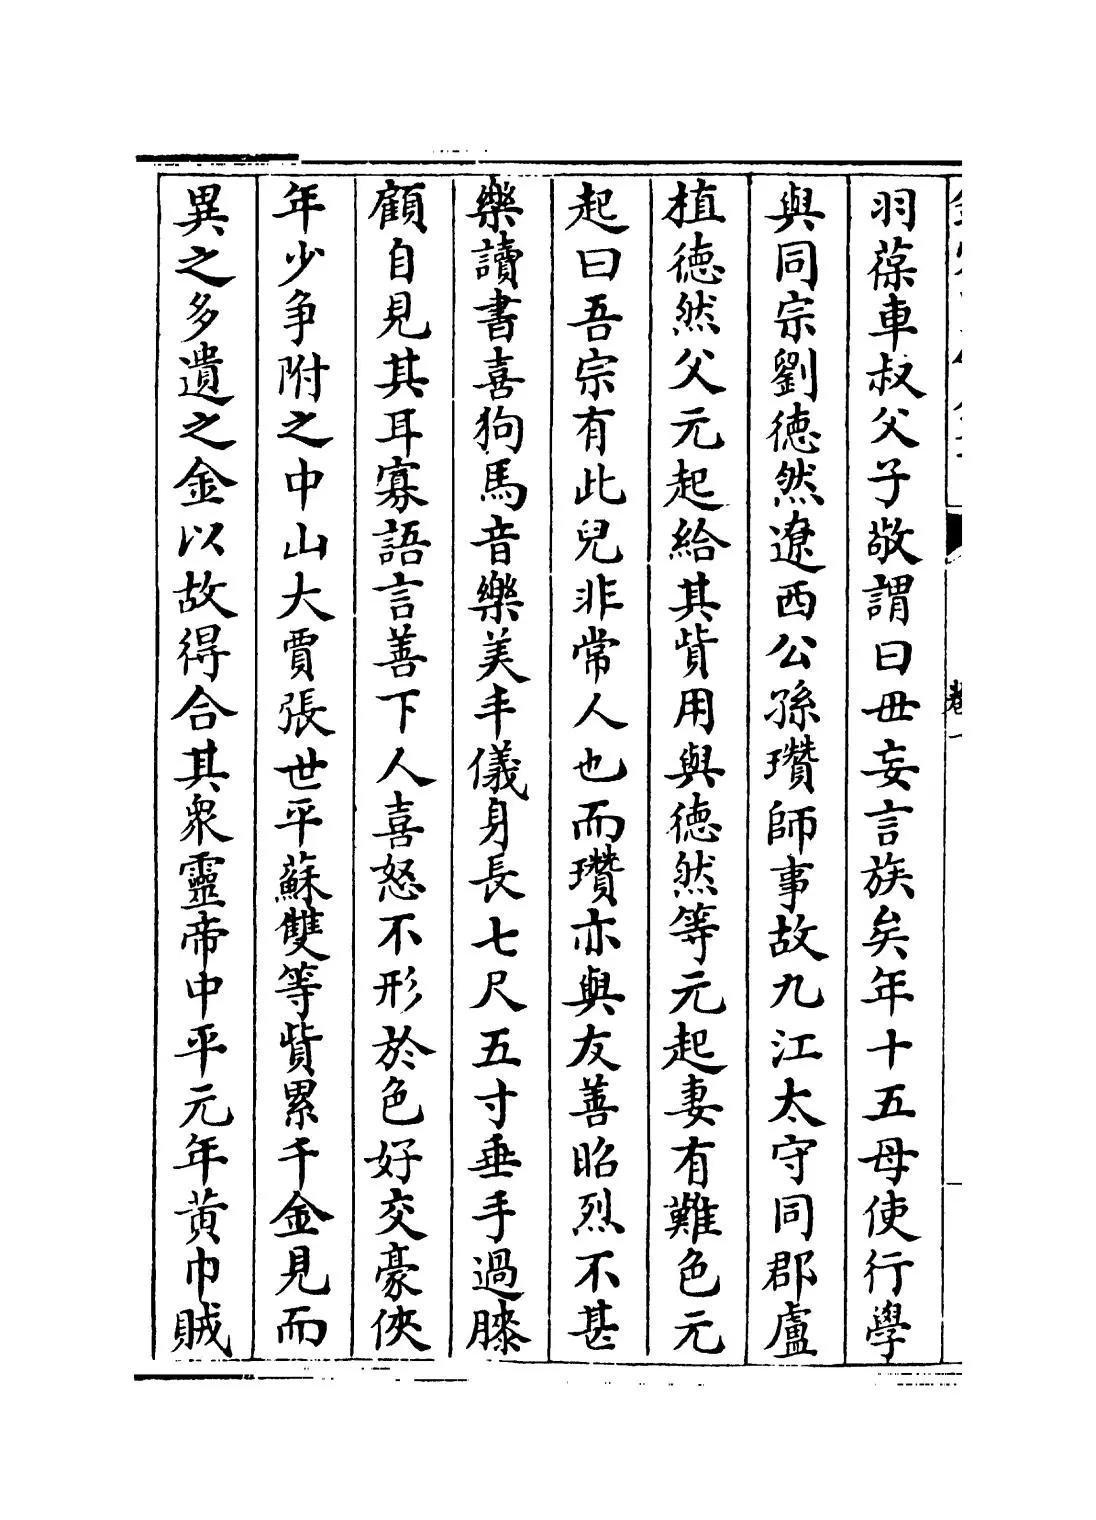 羽葆車叔父子敬謂曰毋妄言族矣年十五母使行學
與同宗劉徳然遼西公孫瓚師事故九江太守同郡盧
植徳然父元起給其貲用與徳然等元起妻有難色元
起曰吾宗有此兒非常人也而瓚亦與友善昭烈不甚
樂讀書喜狗馬音樂美丰儀身長七尺五寸垂手過膝
顧自見其耳寡語言善下人喜怒不形於色好交豪俠
年少争附之中山大賈張世平蘇雙等貲累千金見而
異之多遺之金以故得合其衆靈帝中平元年黄巾賊